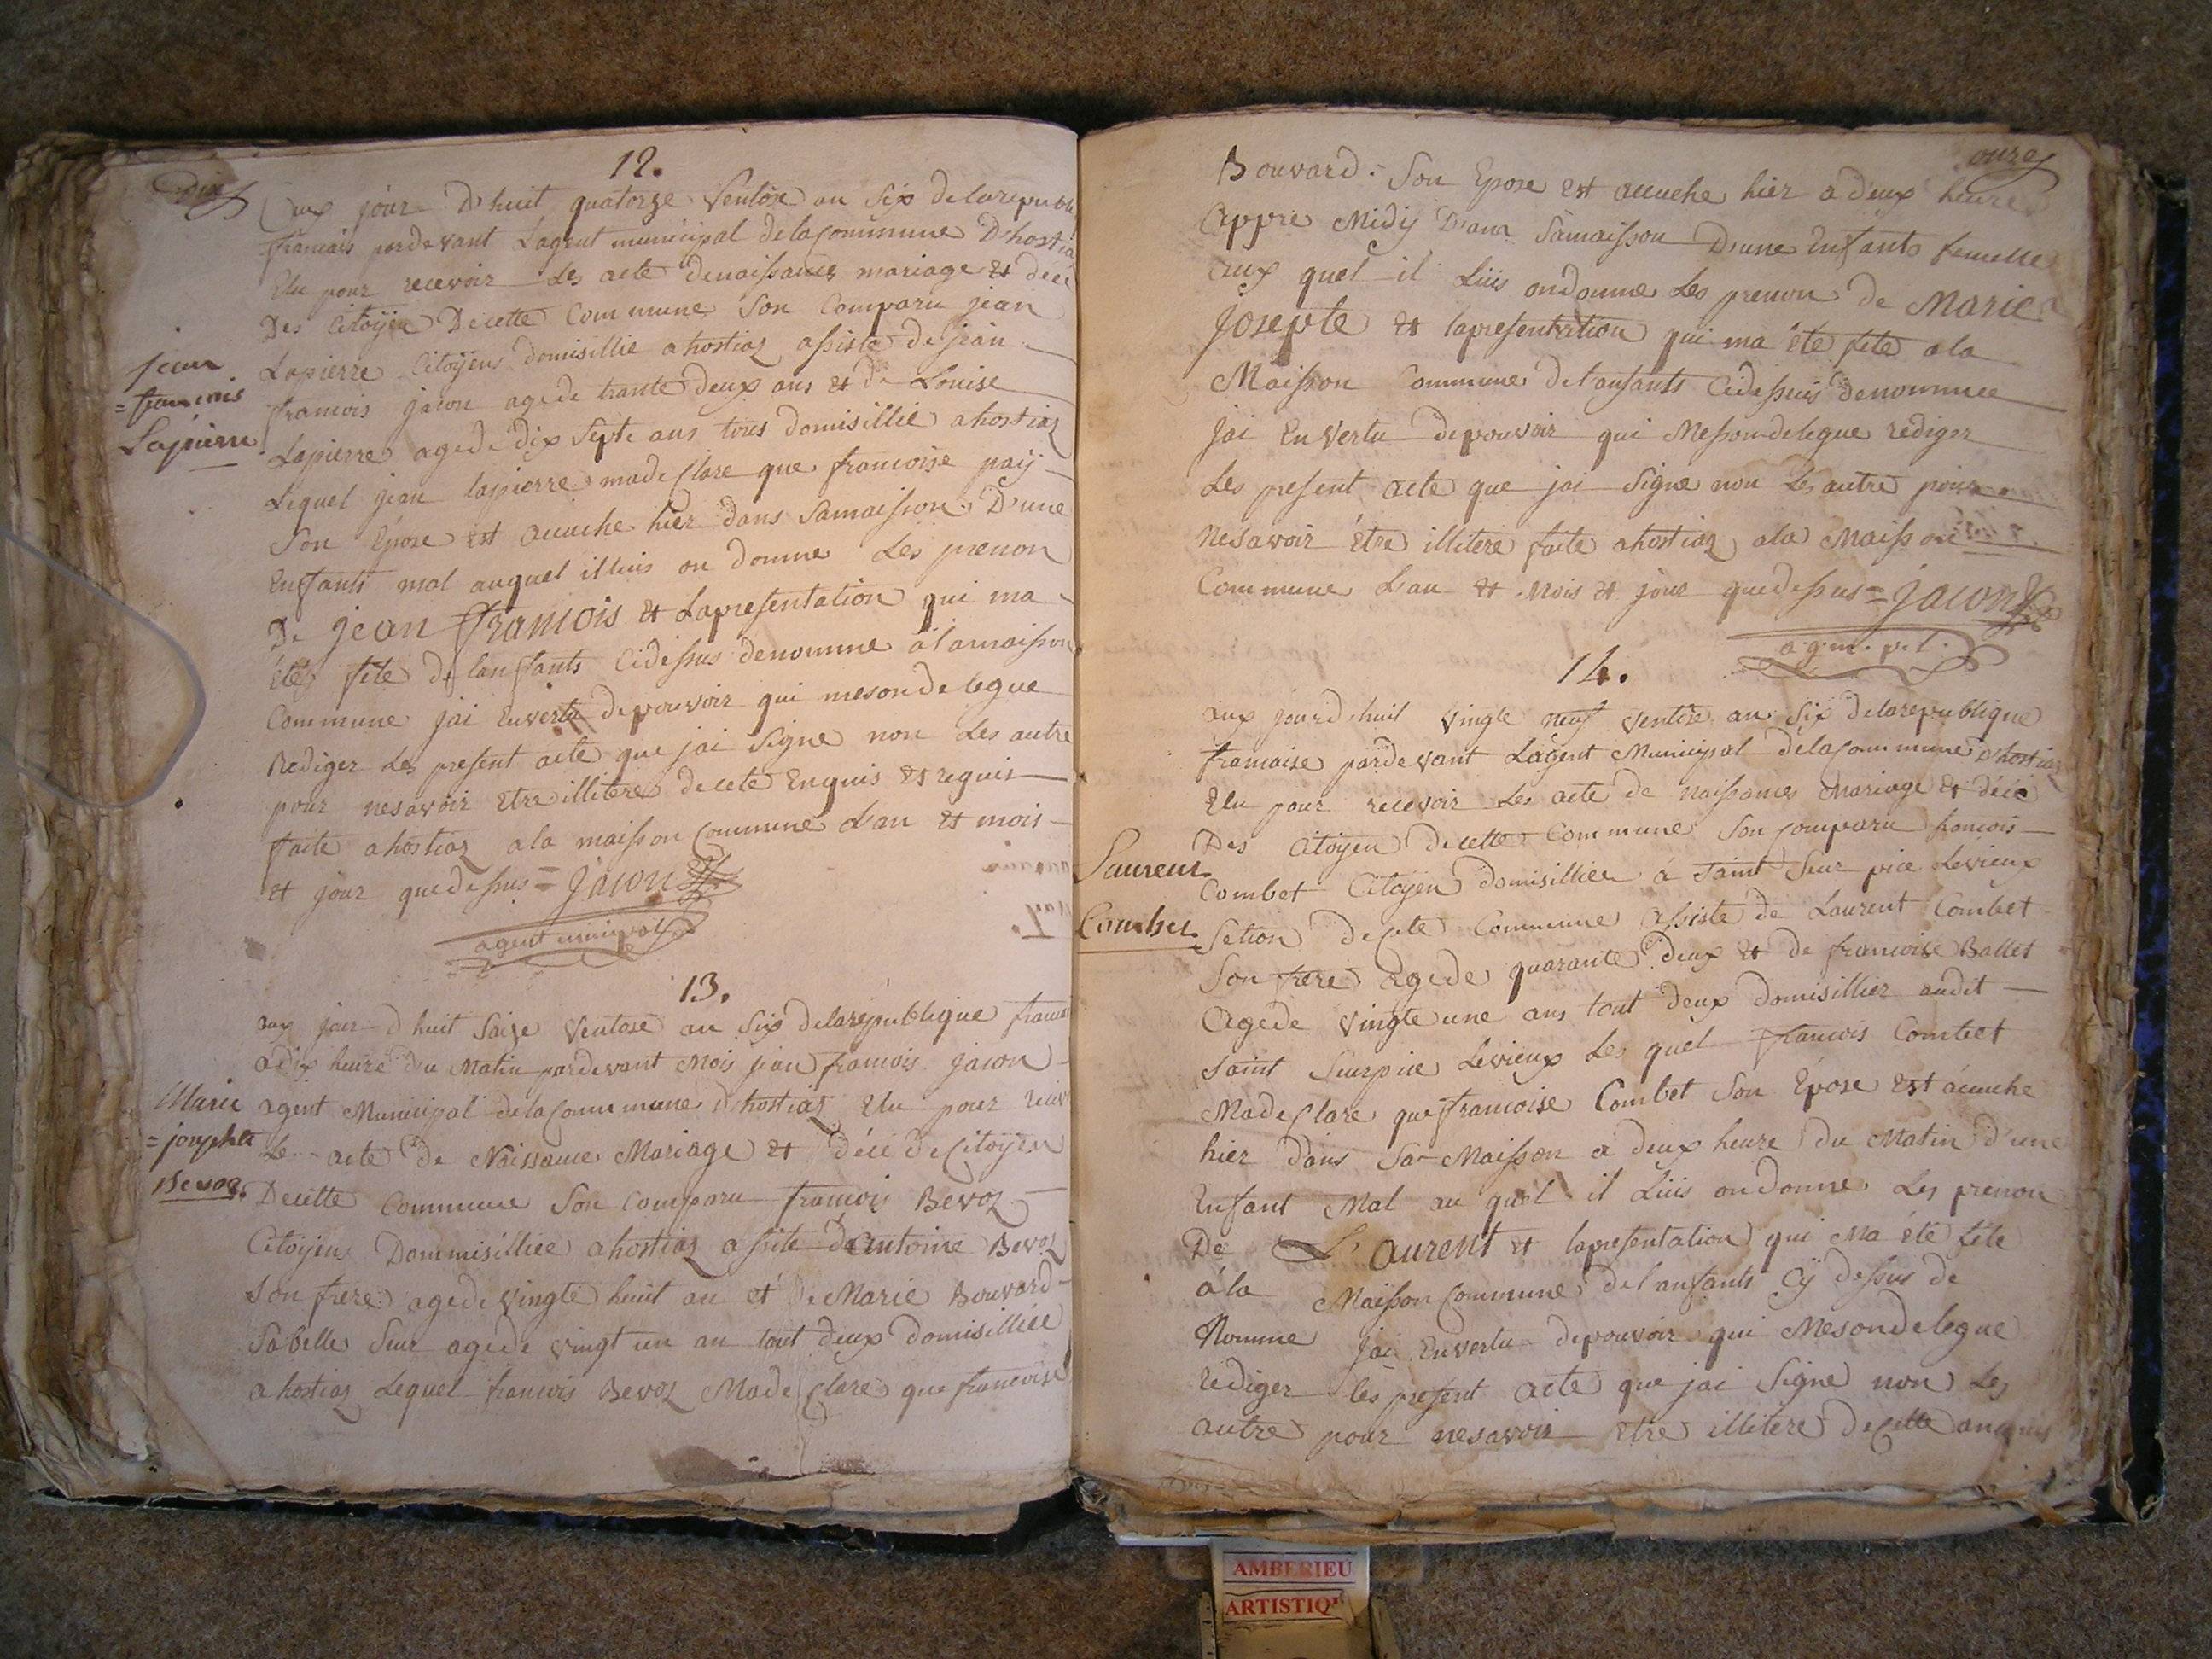 dix
12.
Aux jour D'huit quatorze Ventôse an Six delarepubli
francais pardevant Lagent municipal delaCommune D'hostia
Elu pour recevoir Les acte denaissance mariage et décé
Des Citoÿen Decette Commune Son Comparu jean
Lapierre Citoÿens domisillie a hostiaz assiste de jean
jean
=francois
Lapierre
francois jacon agede trante deux ans et de Louise
Lapierre agede dix Septe ans tous domisillie a hostiaz
Lequel jean lapierre madeClare que francoise paij
Son Epose est acuche hier dans Samaisson D'une
Enffants mal auquel illuis on donne Les prenon
De jean francois et Lapresentation qui ma
étés féte de lanffants Cidessus denomme a lamaisson
Commune jai Envertu depouvoir qui mesondelegue
Rediger Les present acte que jai Signe non Les autre
pour nesavoir Etre illitere decete Enquis et requis
faite a hostiaz ala maisson Commune L'an et mois
et jour quedessus = Jacon
agent municipal
13.
aux jour d huit Saize Ventose an Six delarepublique francai
a dix heure du Matin pardevant Mois jean francois jacon
Marie
=josephte
Bevoz
agent Municipal delaCommune d'hostiaz Elu pour recev
Les acte de Naissance Mariage et décé de Citoÿen
Decette Commune Son Comparu francois Bevoz
Citoÿens Dommisilliée a hostiaz assite d'antoine Bevoz
Son frere agede Vingte huit an et de Marie Bouvard
Sabelle Seur agede vingt un an tout deux domisilliée
a hostiaz Lequel francois Bevoz MadeClare que francoise
onze
Bouvard Son Epose est acuche hier a deux heure
Appre Midij Dans Samaisson D'une Enffants femelle
aux quel il Luis ondonne Les prenon de Marie
Josepte et lapresentation qui ma été fete ala
Maisson Commune de l'anfants Cidessus denommee
jai En Vertu depouvoir qui Messondelegue rediger
Les present acte que jai Signe non Les autre pour
nesavoir être illitere faite a hostiaz ala Maisson
Commune L'an et mois et jour quedessus = jacon
ag. m. p. l.
14.
aux jourd huit Vingte neuf Ventôse an Six delarepublique
francaise pardevant Lagent Municipal delaCommune d'hostiaz
Elu pour recevoir Les acte de naissances Mariage et décé
Des Citoÿen decette Commune Son Comparu francois
Laurent
Combet
Combet Citoÿen domisilliée á Saint Seur pice Levieux
Setion decete Commune assiste de Laurent Combet
Son frere agede quarante deux et de francoise Ballet
Agede Vingte une ans tout deux domisillier audit
Saint Seurpice Levieux Les quel francois Combet
MadeClare que francoise Combet Son Épose est acuche
hier dans Sa Maisson a deux heure du Matin d'une
Enfant Mal au quel il Luis ondonne Les prenon
De Laurent et lapresentation qui Ma été féte
á la Maisson Commune de l anfants Cÿ dessus de
Nomme jai Envertu depouvoir qui Mesondelegue
rediger les present acte que jai Signe non Les
autre pour nesavoir Etre illitere deCette anquis
AMBERIEU
ARTISTIQ